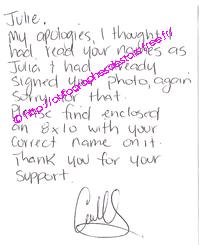 Julie.
My apologies, I thought I
had read your names as
Julia & had already
signed your photo, again
sorry for that.
Please find enclosed
an 8x10 with your
correct name on it.
Thank you for your
support.